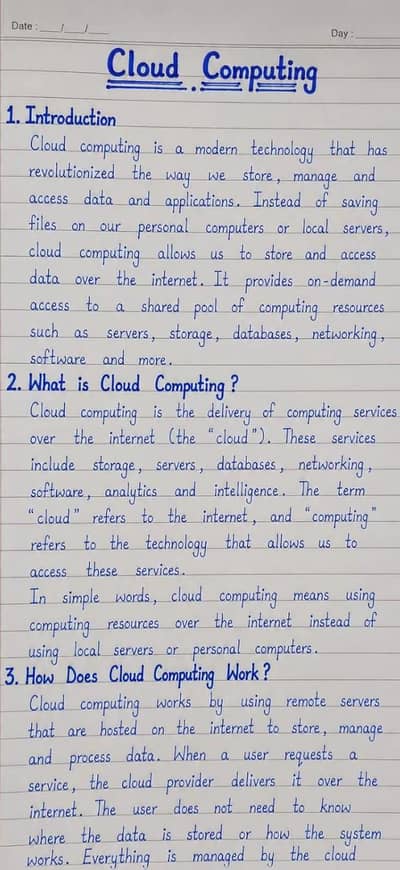 Date : __/__/__
Day : ____
Cloud Computing
1. Introduction
Cloud computing is a modern technology that has
revolutionized the way we store, manage and
access data and applications. Instead of saving
files on our personal computers or local servers,
cloud computing allows us to store and access
data over the internet. It provides on-demand
access to a shared pool of computing resources
such as servers, storage, databases, networking,
software and more.
2. What is Cloud Computing?
Cloud computing is the delivery of computing services
over the internet (the "cloud"). These services
include storage, servers, databases, networking,
software, analytics and intelligence. The term
"cloud" refers to the internet, and "computing"
refers to the technology that allows us to
access these services.
In simple words, cloud computing means using
computing resources over the internet instead of
using local servers or personal computers.
3. How Does Cloud Computing Work?
Cloud computing works by using remote servers
that are hosted on the internet to store, manage
and process data. When a user requests a
service, the cloud provider delivers it over the
internet. The user does not need to know
where the data is stored or how the system
works. Everything is managed by the cloud